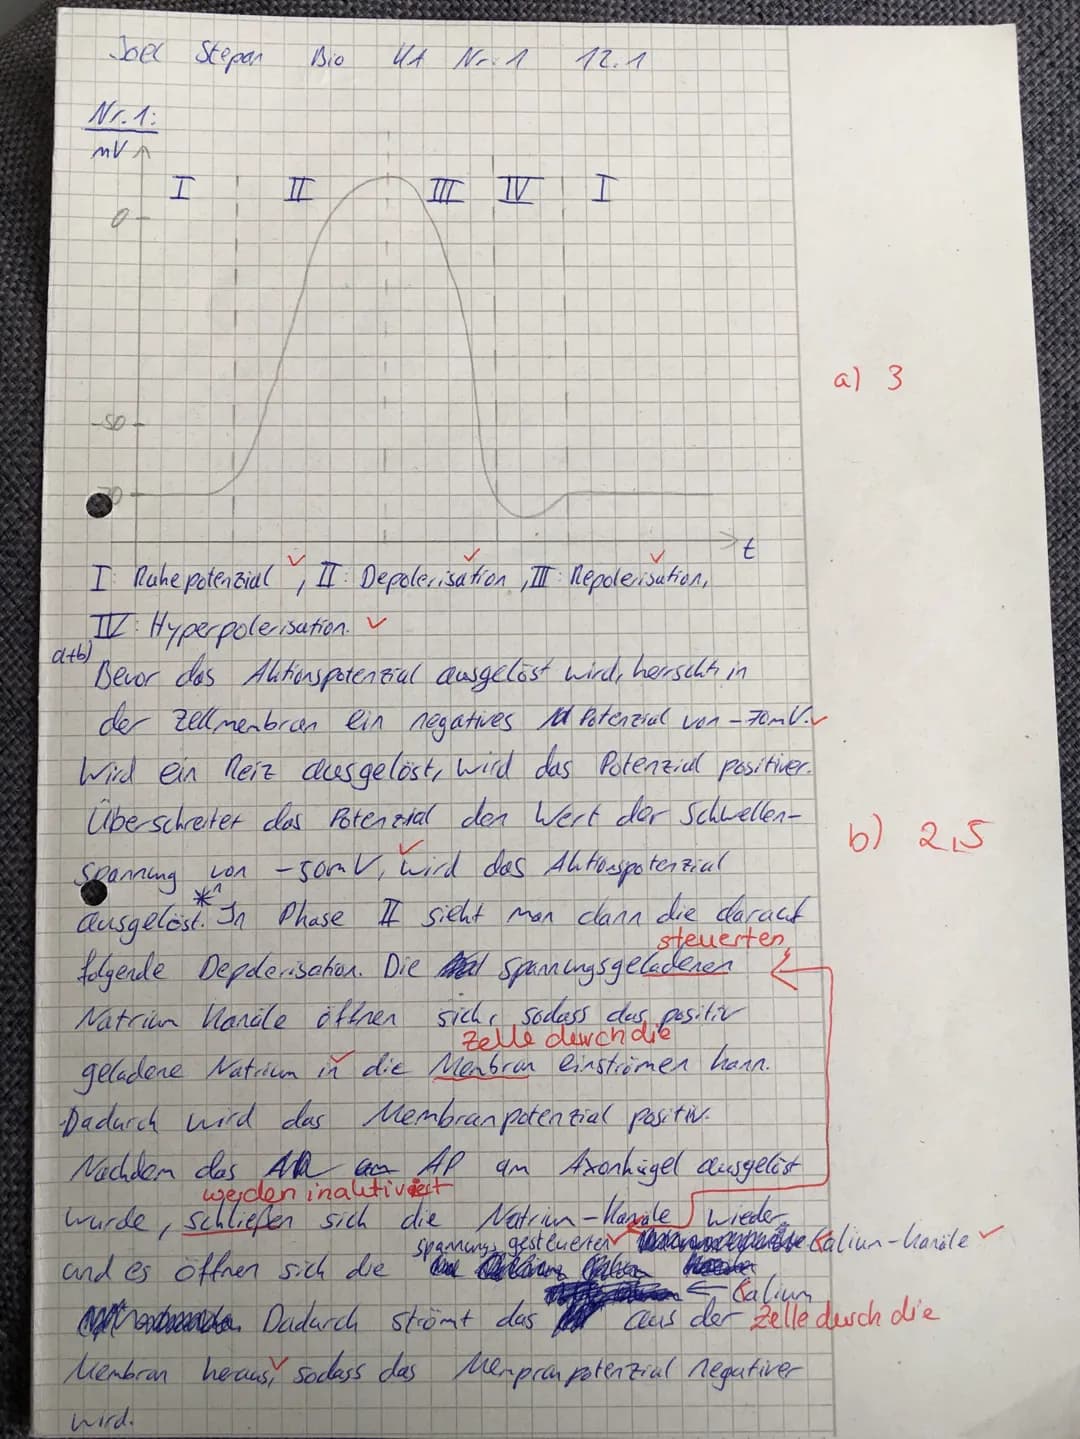 Joel Stepan Bio KA Nr. 1 12.1
Nr. 1:
mV
I II III IV I
0
a) 3
-50
-70
t
I: Ruhepotenzial ✓, II: Depolerisation ✓, III: Repolerisation, ✓
IV: Hyperpolerisation. ✓
a+b)
Bevor das Aktionspotenzial ausgelöst wird, herrscht in
der Zellmenbran ein negatives Potenzial von -70mV. ✓
Wird ein Reiz ausgelöst, wird das Potenzial positiver.
Überschreitet das Potenzial den Wert der Schwellen-
b) 2,5
spannung von -50mV, ✓ wird das Aktionspotenzial
ausgelöst. *1 In Phase II sieht man dann die darauf
steuerten
folgende Depolerisation. Die spannungsgeladenen
Natrium Kanäle öffnen sich, sodass das positiv
Zelle durch die
geladene Natrium in ✓ die Menbran einströmen kann.
Dadurch wird das Membranpotenzial positiv.
Nachdem das AP am Axonhügel ausgelöst
werden inaktiviert
wurde, schließen sich die Natrium-Kanäle wieder
spannungsgesteuerten ✓ Kalium-Kanäle ✓
und es öffnen sich die
← Kalium
Dadurch strömt das aus der Zelle durch die
Membran heraus, ✓ sodass das Menpranpotenzial negativer
wird.